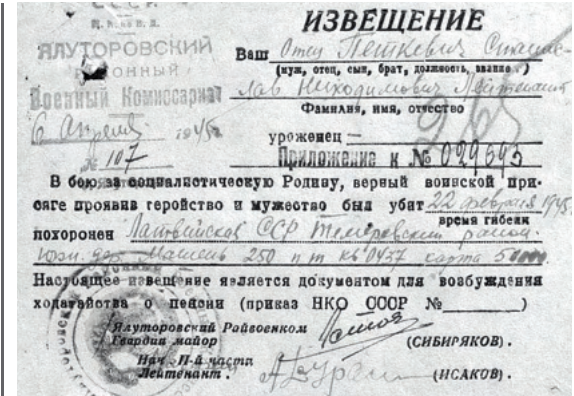 С. С. С. Р.
ЯЛУТОРОВСКИЙ
РАЙОННЫЙ
Военный Комиссариат
6 Апреля 1945г
№ 107
ИЗВЕЩЕНИЕ
Ваш Отец Петкевич Станис-
(муж, отец, сын, брат, должность, звание)
лав Никодимович Лейтенант
Фамилия, имя, отчество
уроженец —
Приложение к № 029693
В бою за социалистическую Родину, верный воинской при-
сяге проявив геройство и мужество был убит 22 февраля 1945
время гибели
похоронен Латвийская ССР район
250 карта
Настоящее извещение является документом для возбуждения
ходатайства о пенсии (приказ НКО СССР № )
Ялуторовский Райвоенком
Гвардии майор (СИБИРЯКОВ).
Нач. II-й части
Лейтенант. (ИСАКОВ).